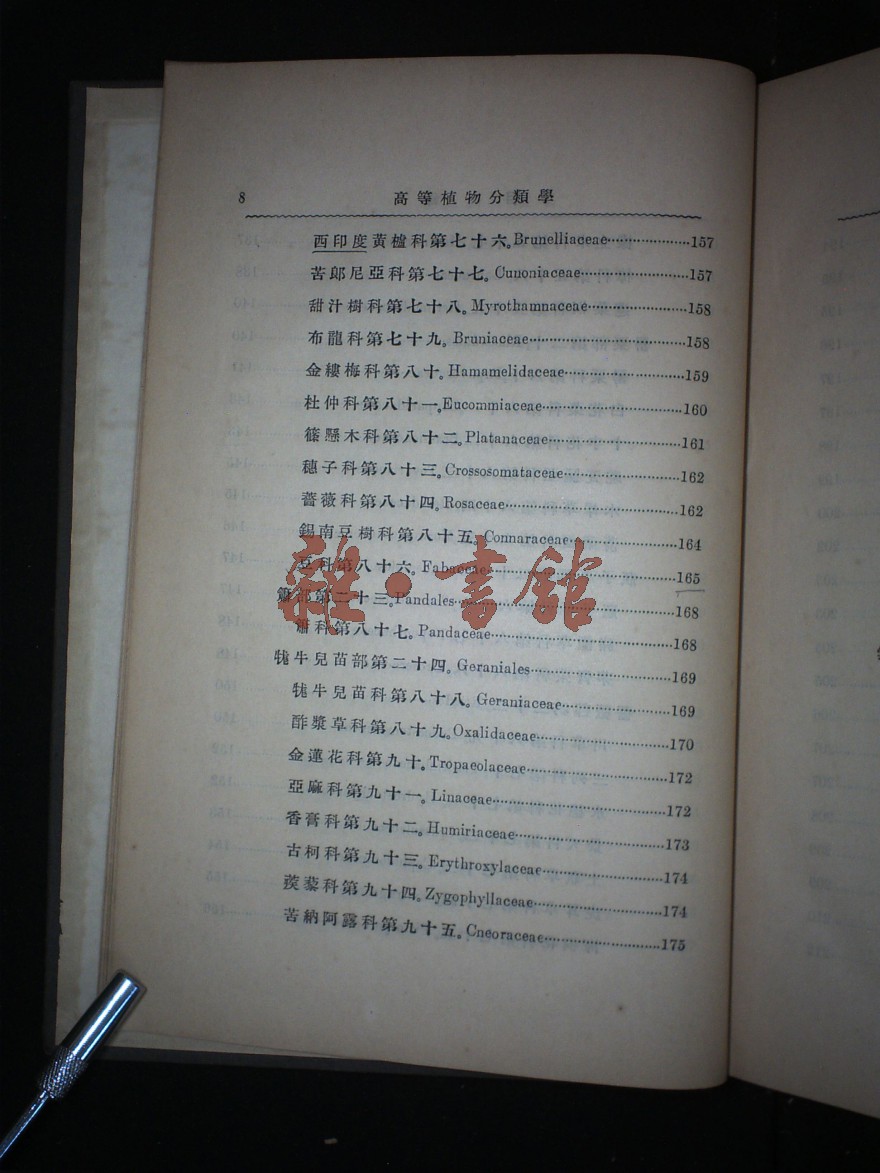 8 高等植物分類學
西印度黃櫨科第七十六。Brunelliaceae····················157
苦郞尼亞科第七十七。Cunoniaceae····················157
甜汁樹科第七十八。Myrothamnaceae····················158
布龍科第七十九。Bruniaceae····················158
金縷梅科第八十。Hamamelidaceae····················159
杜仲科第八十一。Eucommiaceae····················160
篠懸木科第八十二。Platanaceae····················161
穗子科第八十三。Crossosomataceae····················162
薔薇科第八十四。Rosaceae····················162
錫南豆樹科第八十五。Connaraceae····················164
豆科第八十六。Fabaceae····················165
簫部第二十三。Pandales····················168
簫科第八十七。Pandaceae····················168
牻牛兒苗部第二十四。Geraniales····················169
牻牛兒苗科第八十八。Geraniaceae····················169
酢漿草科第八十九。Oxalidaceae····················170
金蓮花科第九十。Tropaeolaceae····················172
亞麻科第九十一。Linaceae····················172
香膏科第九十二。Humiriaceae····················173
古柯科第九十三。Erythroxylaceae····················174
蒺藜科第九十四。Zygophyllaceae····················174
苦納阿露科第九十五。Cneoraceae····················175
雜·書館